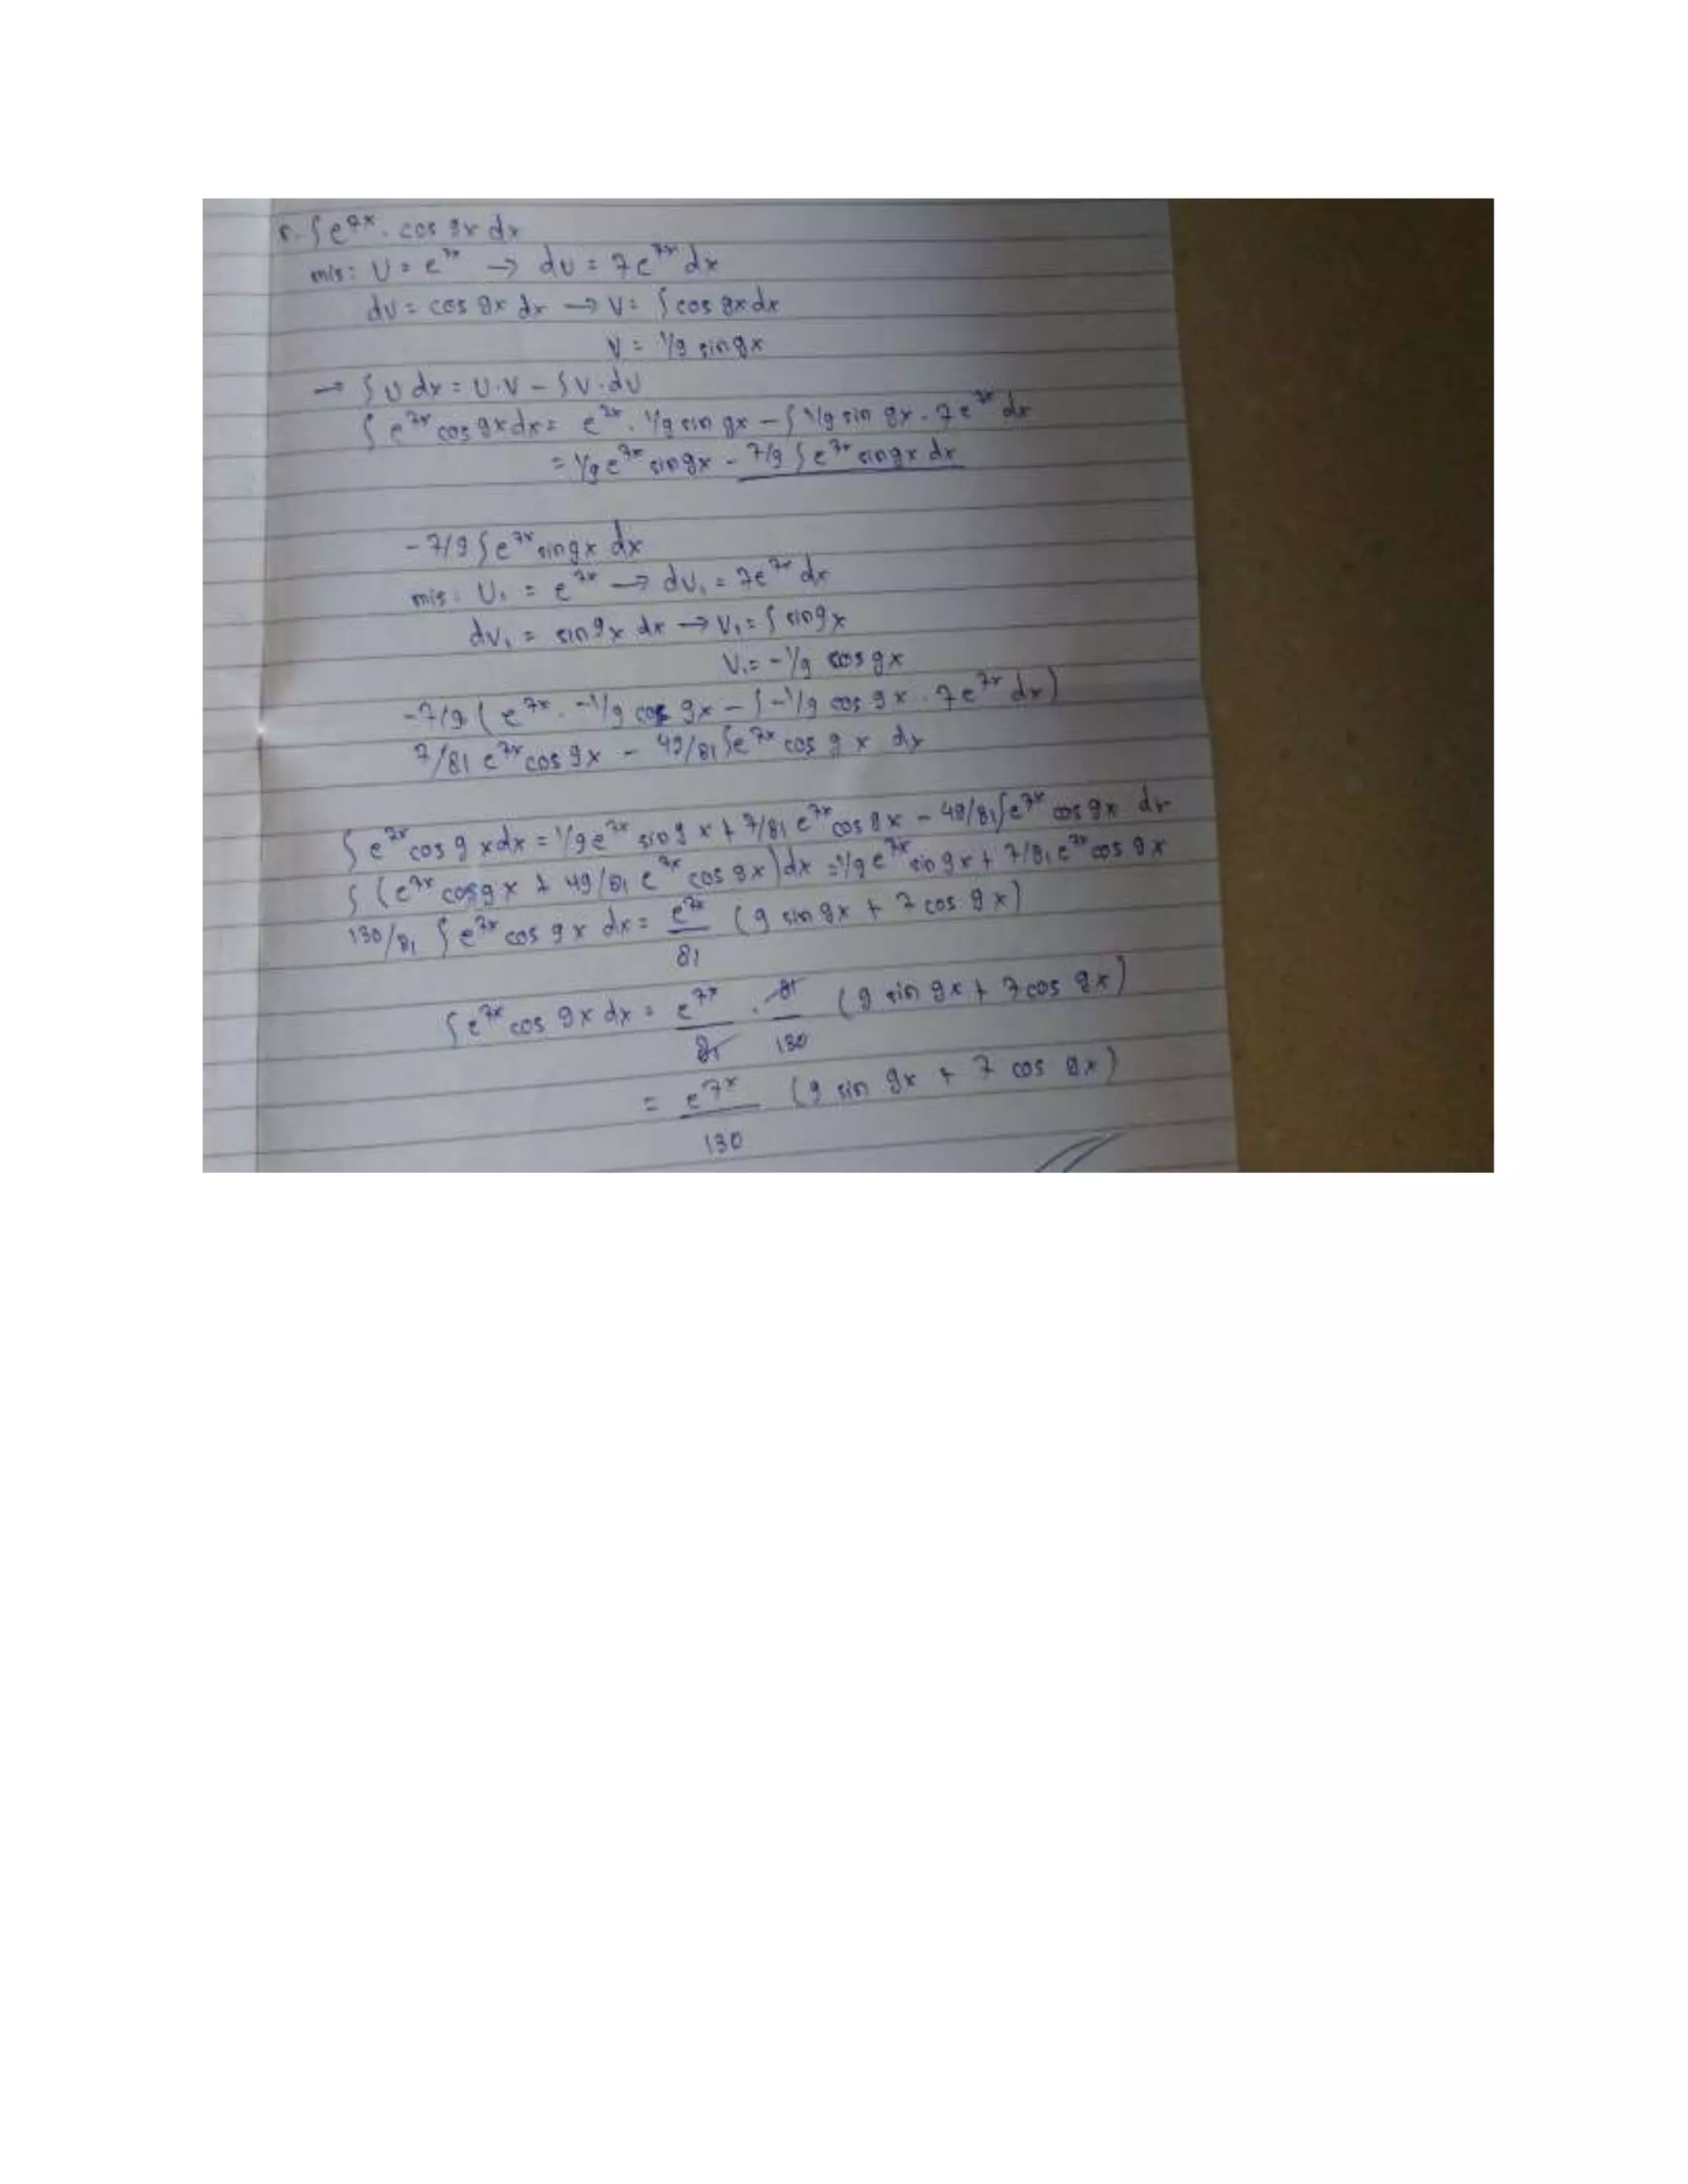 ∫e^7x . cos 9x dx
mis : U = e^7x → du = 7e^7x dx
dv = cos 9x dx → V = ∫ cos 9x dx
V = 1/9 sin 9x
→ ∫ U dx = U.V - ∫ V.dU
∫ e^7x cos 9x dx = e^7x . 1/9 sin 9x - ∫ 1/9 sin 9x . 7e^7x dx
= 1/9 e^7x sin 9x - 7/9 ∫ e^7x sin 9x dx
- 7/9 ∫ e^7x sin 9x dx
mis : U₁ = e^7x → dU₁ = 7e^7x dx
dv₁ = sin 9x dx → V₁ = ∫ sin 9x
V₁ = -1/9 cos 9x
-7/9 ( e^7x . -1/9 cos 9x - ∫ -1/9 cos 9x . 7e^7x dx )
7/81 e^7x cos 9x - 49/81 ∫e^7x cos 9x dx
∫ e^7x cos 9x dx = 1/9 e^7x sin 9x + 7/81 e^7x cos 9x - 49/81 ∫e^7x cos 9x dx
∫ (e^7x cos 9x + 49/81 e^7x cos 9x) dx = 1/9 e^7x sin 9x + 7/81 e^7x cos 9x
130/81 ∫ e^7x cos 9x dx = e^7x/81 (9 sin 9x + 7 cos 9x)
∫ e^7x cos 9x dx = e^7x/81 . 81/130 (9 sin 9x + 7 cos 9x)
= e^7x/130 (9 sin 9x + 7 cos 9x)